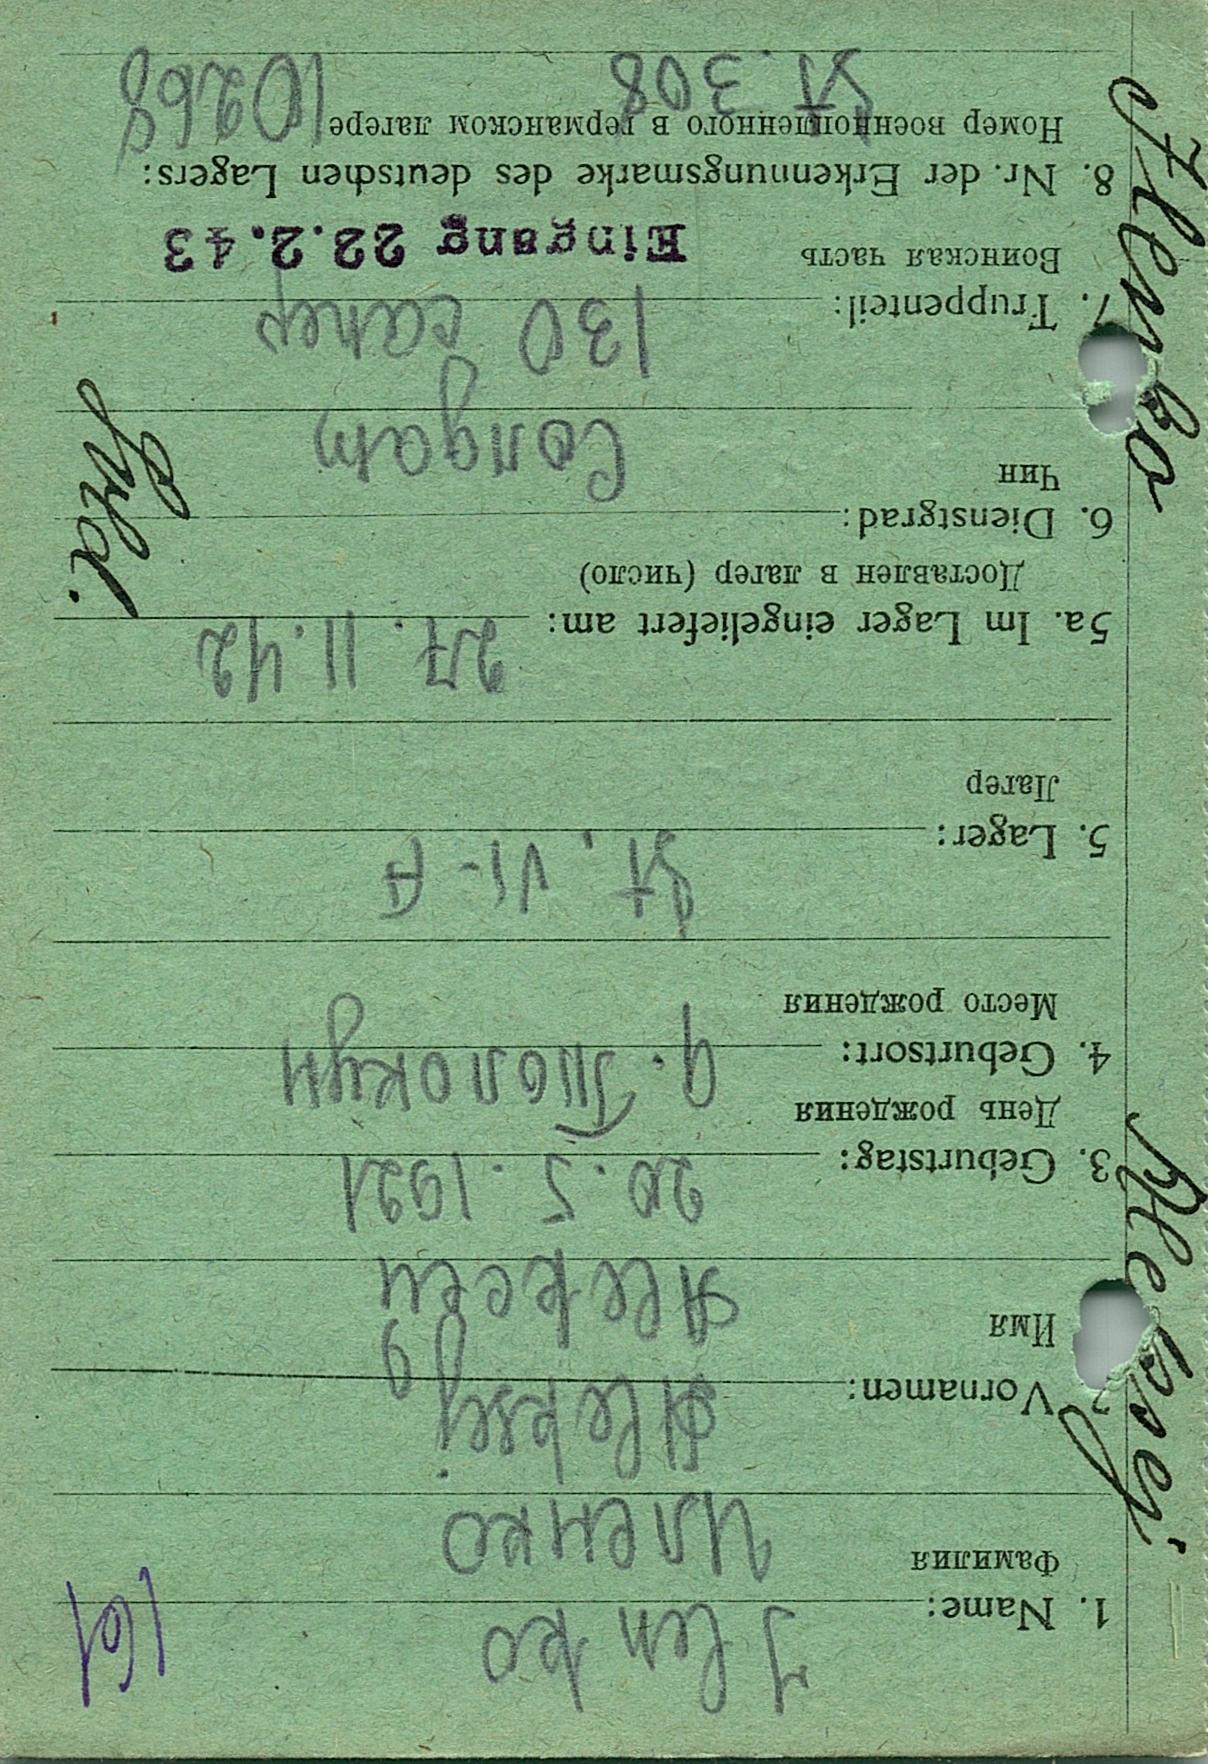 161
1. Name: Jlenko
Фамилия Иленко
2. Vornamen: Aleksej
Имя Алексей
3. Geburtstag: 20.5.1921
День рождения
4. Geburtsort: д. Толокун
Место рождения
5. Lager: St. VI-A
Лагер
5a. Im Lager eingeliefert am: 27.11.42
Доставлен в лагер (число)
6. Dienstgrad: Солдат
Чин
Sold.
7. Truppenteil: 130 сапер
Воинская часть Eingang 22.2.43
8. Nr. der Erkennungsmarke des deutschen Lagers:
Номер военнопленного в германском лагере 10268
St. 308
Jlenko Aleksej